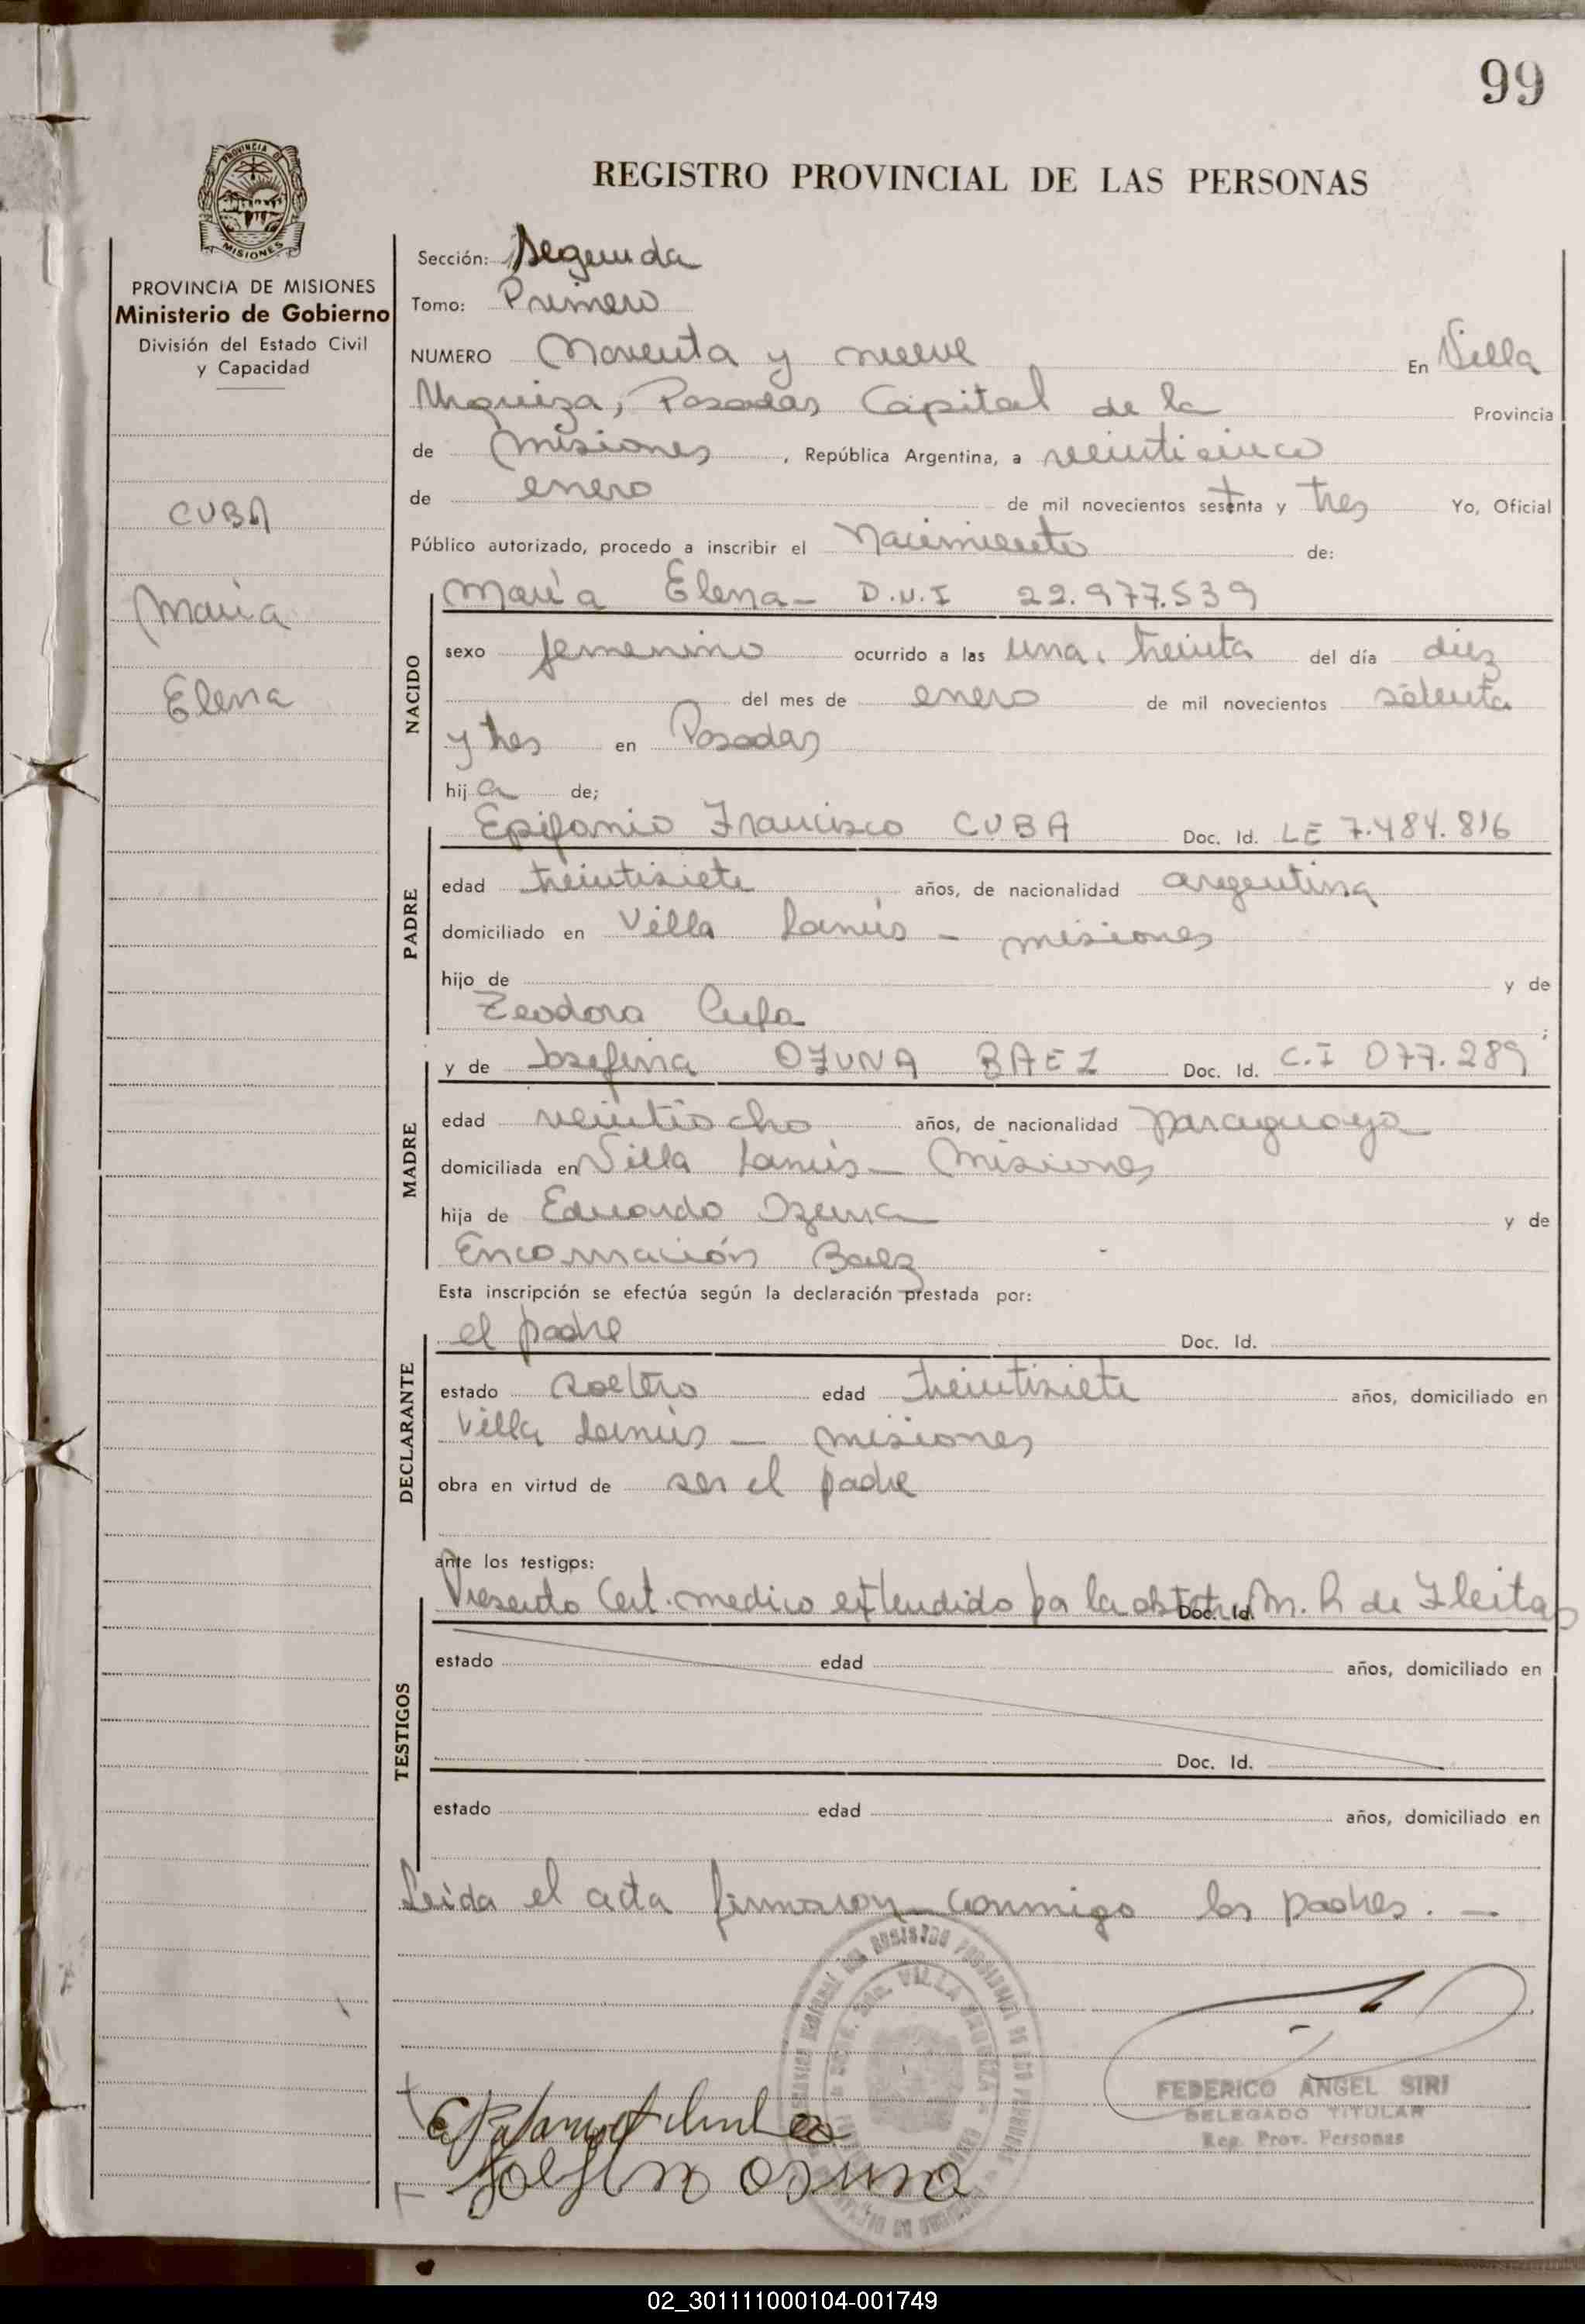 99
REGISTRO PROVINCIAL DE LAS PERSONAS
PROVINCIA DE MISIONES
Ministerio de Gobierno
División del Estado Civil
y Capacidad
CUBA
María
Elena
Sección: Segunda
Tomo: Primero
NUMERO Noventa y nueve En Villa
Urquiza, Posadas Capital de la Provincia
de Misiones, República Argentina, a veinticinco
de enero de mil novecientos setenta y tres Yo, Oficial
Público autorizado, procedo a inscribir el Nacimiento de:
NACIDO
María Elena - D.N.I 22.977.539
sexo femenino ocurrido a las una, treinta del día diez
del mes de enero de mil novecientos setenta
y tres en Posadas
hija de;
PADRE
Epifanio Francisco CUBA Doc. Id. LE 7.484.816
edad treintisiete años, de nacionalidad argentina
domiciliado en Villa Lanús - misiones
hijo de y de
Teodora Cuba;
MADRE
y de Josefina OZUNA BAEZ Doc. Id. C.I 077.289
edad veintiocho años, de nacionalidad paraguaya
domiciliada en Villa Lanús - Misiones
hija de Eduardo Ozuna y de
Encarnación Baez
Esta inscripción se efectúa según la declaración prestada por:
DECLARANTE
el padre Doc. Id.
estado soltero edad treintisiete años, domiciliado en
Villa Lanús - misiones
obra en virtud de ser el padre
ante los testigos:
TESTIGOS
Presento Cert. medico extendido por la obstetra M. R de Fleitas Doc. Id.
estado edad años, domiciliado en
Doc. Id.
estado edad años, domiciliado en
Leída el acta firmaron conmigo los padres. -
FEDERICO ANGEL SIRI
DELEGADO TITULAR
Reg. Prov. Personas
Josefina osuna
02_301111000104-001749